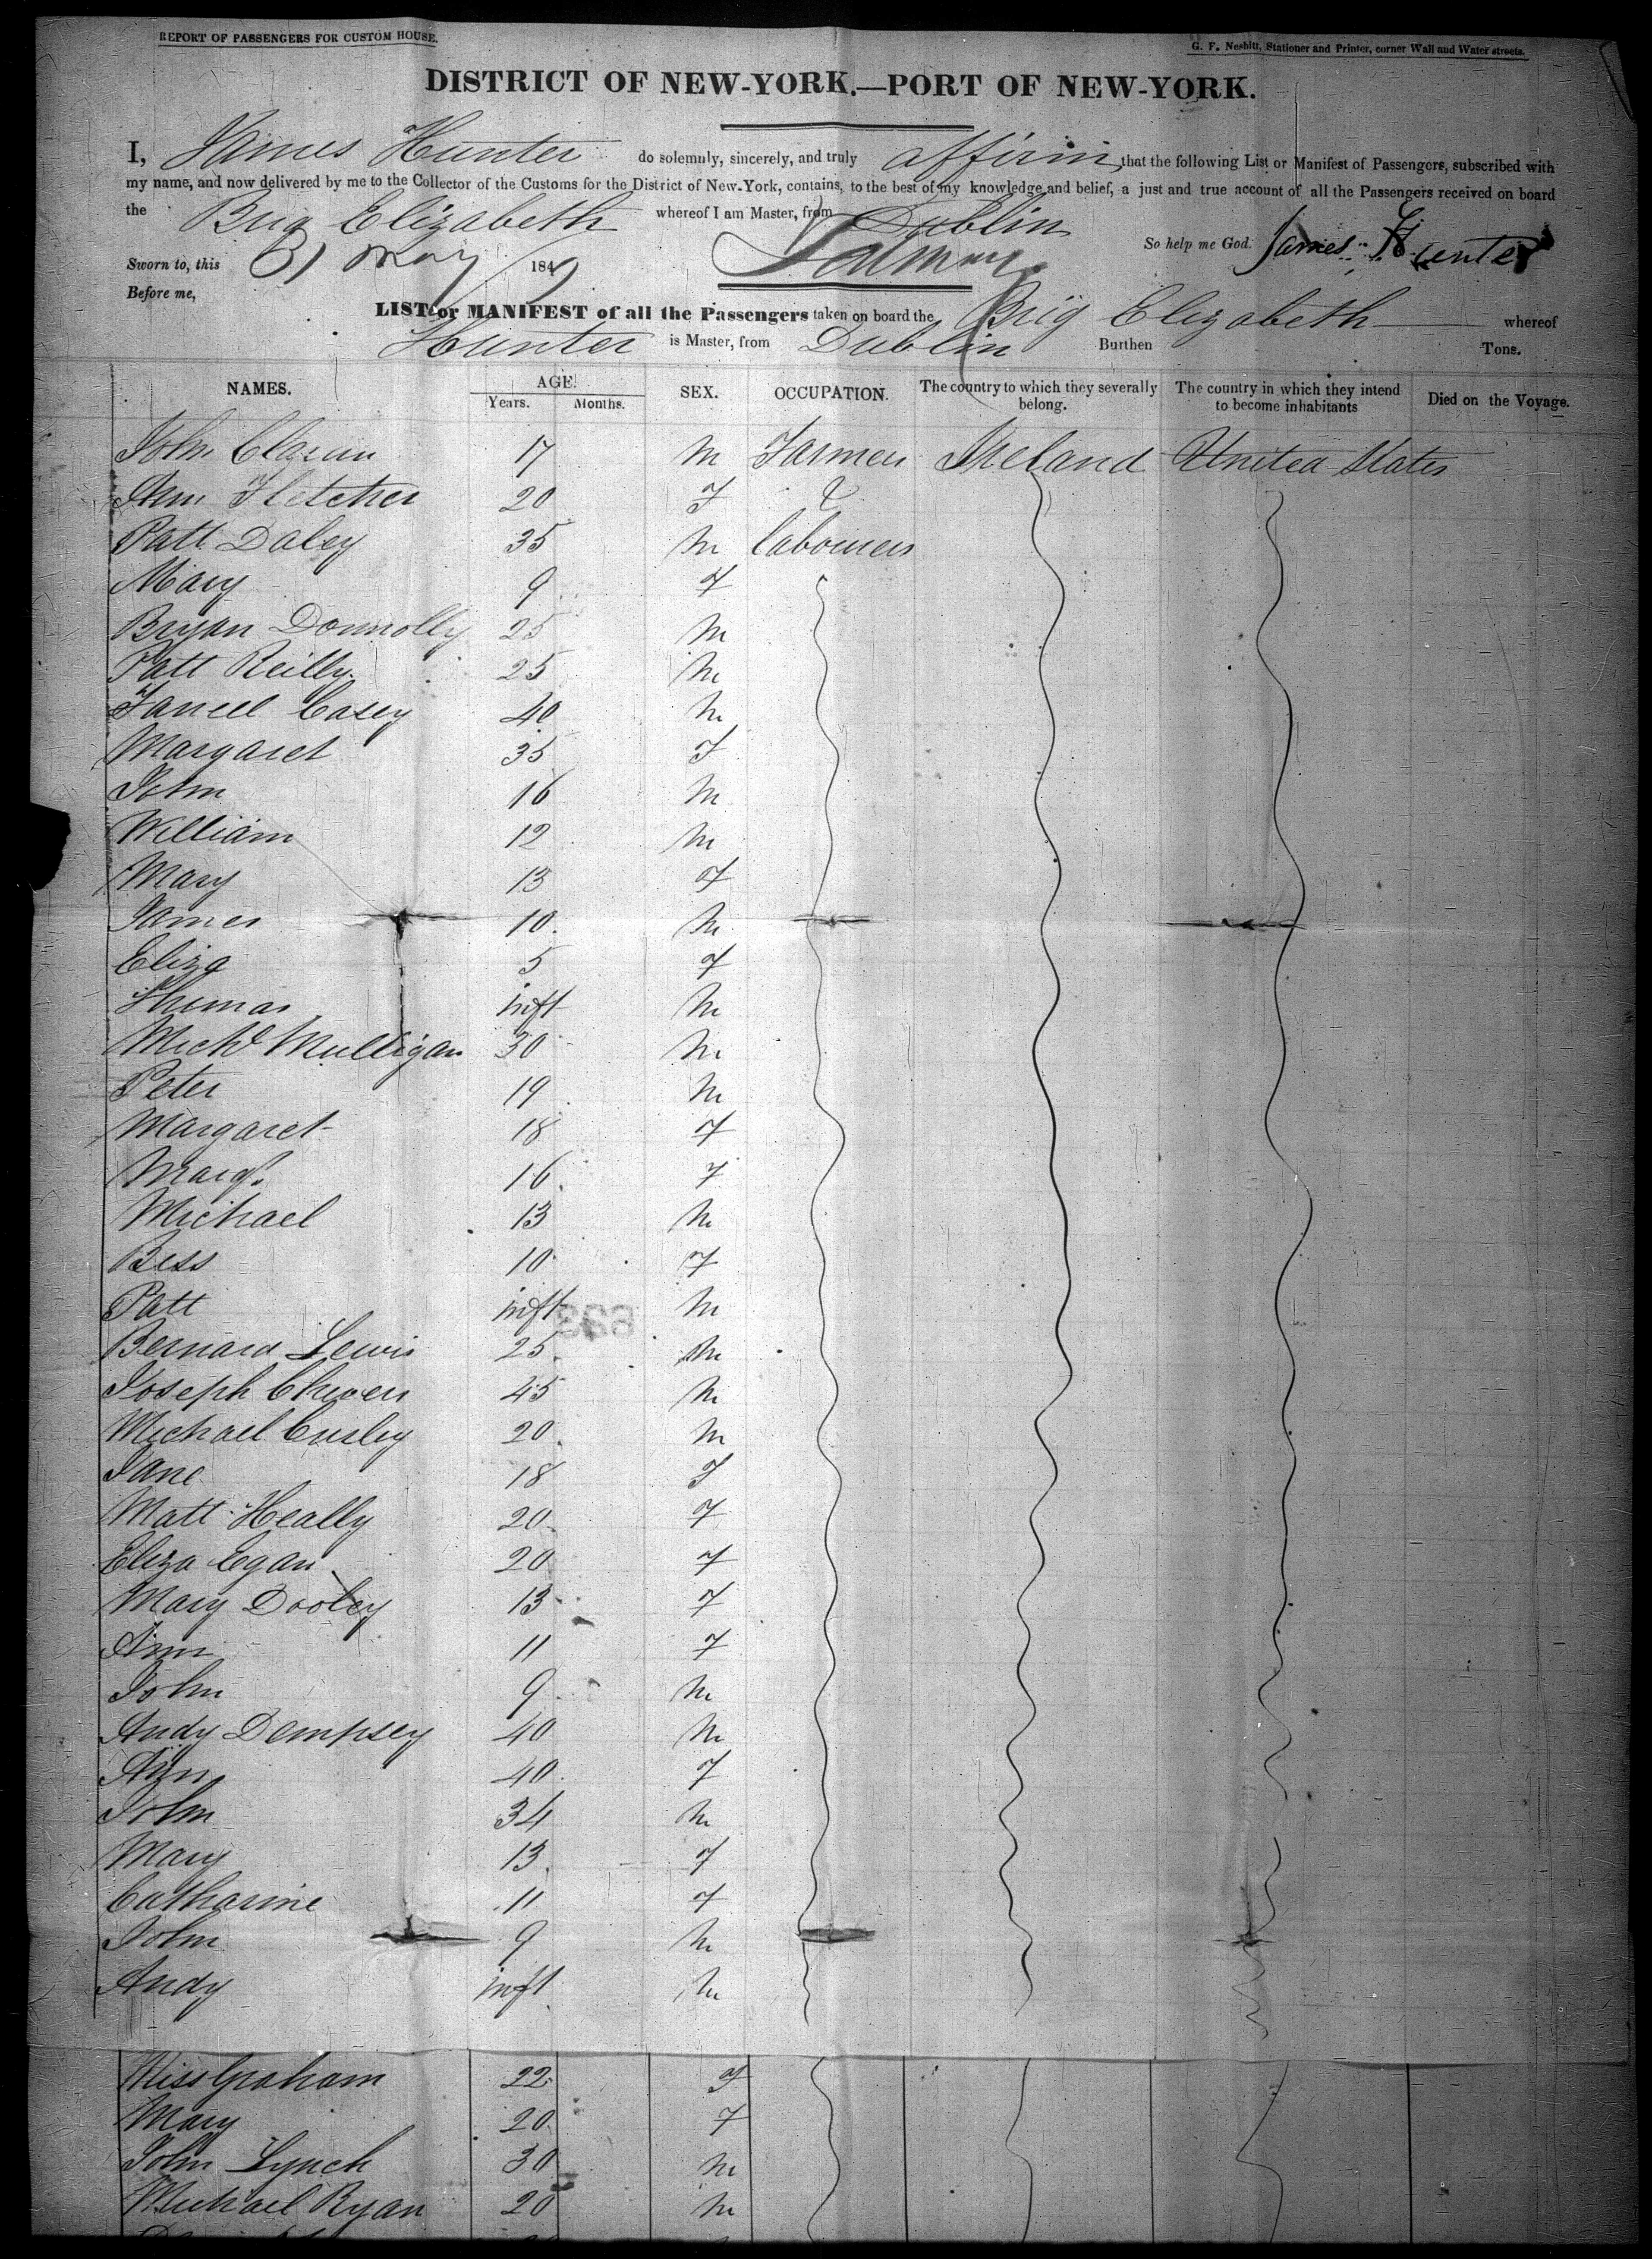 REPORT OF PASSENGERS FOR CUSTOM HOUSE.
G. F. Nesbitt, Stationer and Printer, corner Wall and Water streets.
DISTRICT OF NEW-YORK.—PORT OF NEW-YORK.
I, James Hunter do solemnly, sincerely, and truly affirm, that the following List or Manifest of Passengers, subscribed with
my name, and now delivered by me to the Collector of the Customs for the District of New-York, contains, to the best of my knowledge and belief, a just and true account of all the Passengers received on board
the Brig Elizabeth whereof I am Master, from Dublin
So help me God. James Hunter
Sworn to, this 31 May 1849
Before me,
LIST or MANIFEST of all the Passengers taken on board the Brig Elizabeth whereof
Hunter is Master, from Dublin Burthen Tons.
NAMES. AGE. Years. Months. SEX. OCCUPATION. The country to which they severally belong. The country in which they intend to become inhabitants Died on the Voyage.
John 17 M Farmer Ireland United States
Ann Fletcher 20 F &
Patt Daley 35 M labourers
Mary 9 F
Bryan Donnolly 25 M
Patt Reilly 25 M
Casey 40 M
Margaret 35 F
John 16 M
William 12 M
Mary 13 F
James 10 M
Eliza 5 F
Thomas inft M
Michl Mulligan 30 M
Peter 19 M
Margaret 18 F
Margt 16 F
Michael 13 M
Bess 10 F
Patt inft M
623
Bernard Lewis 25 M
Joseph 45 M
Michael Cusley 20 M
Jane 18 F
Matt Heally 20 F
Eliza Egan 20 F
Mary Dooley 13 F
Ann 11 F
John 9 M
Andy Dempsey 40 M
Ann 40 F
John 34 M
Mary 13 F
Catharine 11 F
John 9 M
Andy inft M
Miss Graham 22 F
Mary 20 F
John Lynch 30 M
Michael Ryan 20 M